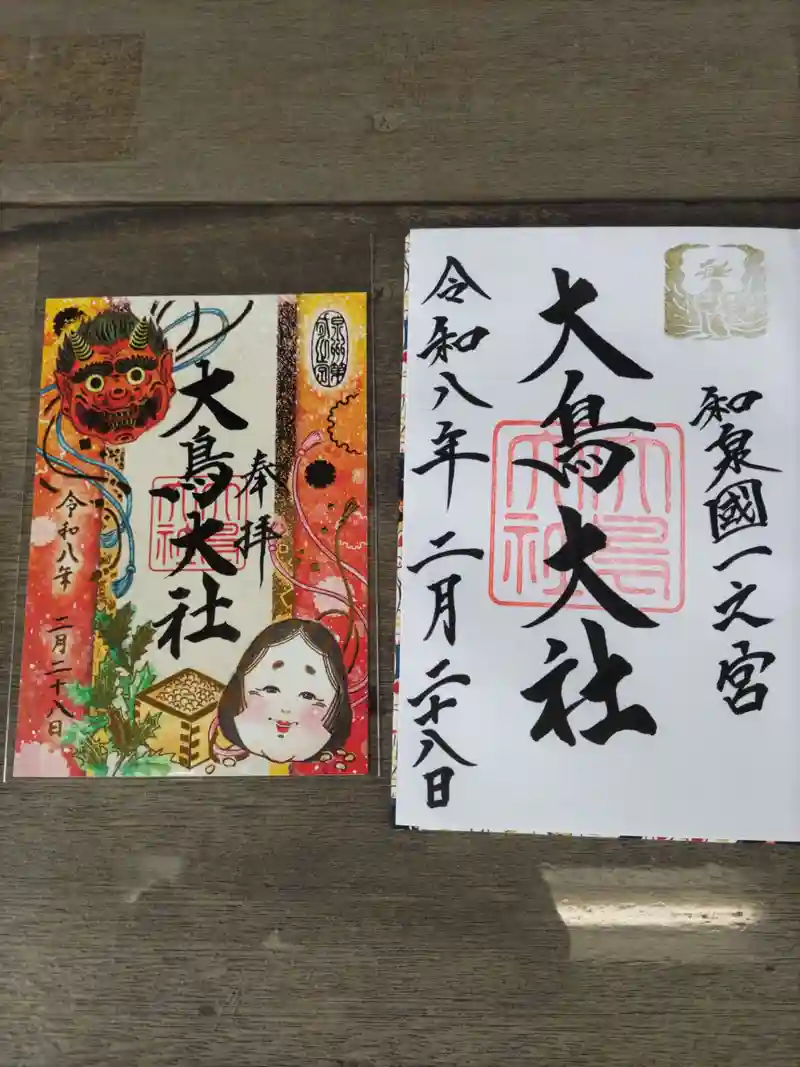 奉拝
大鳥大社
令和八年 二月二十八日
大鳥大社
和泉國一之宮
大鳥大社
大鳥大社
令和八年 二月二十八日